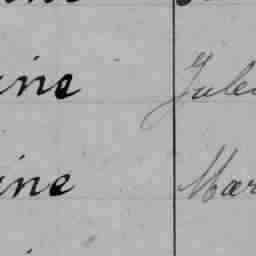 ine Jules
ine Mar